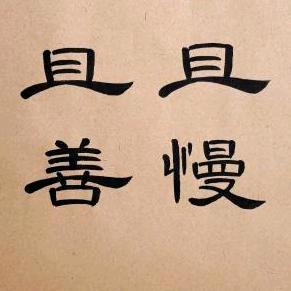 且慢
且善